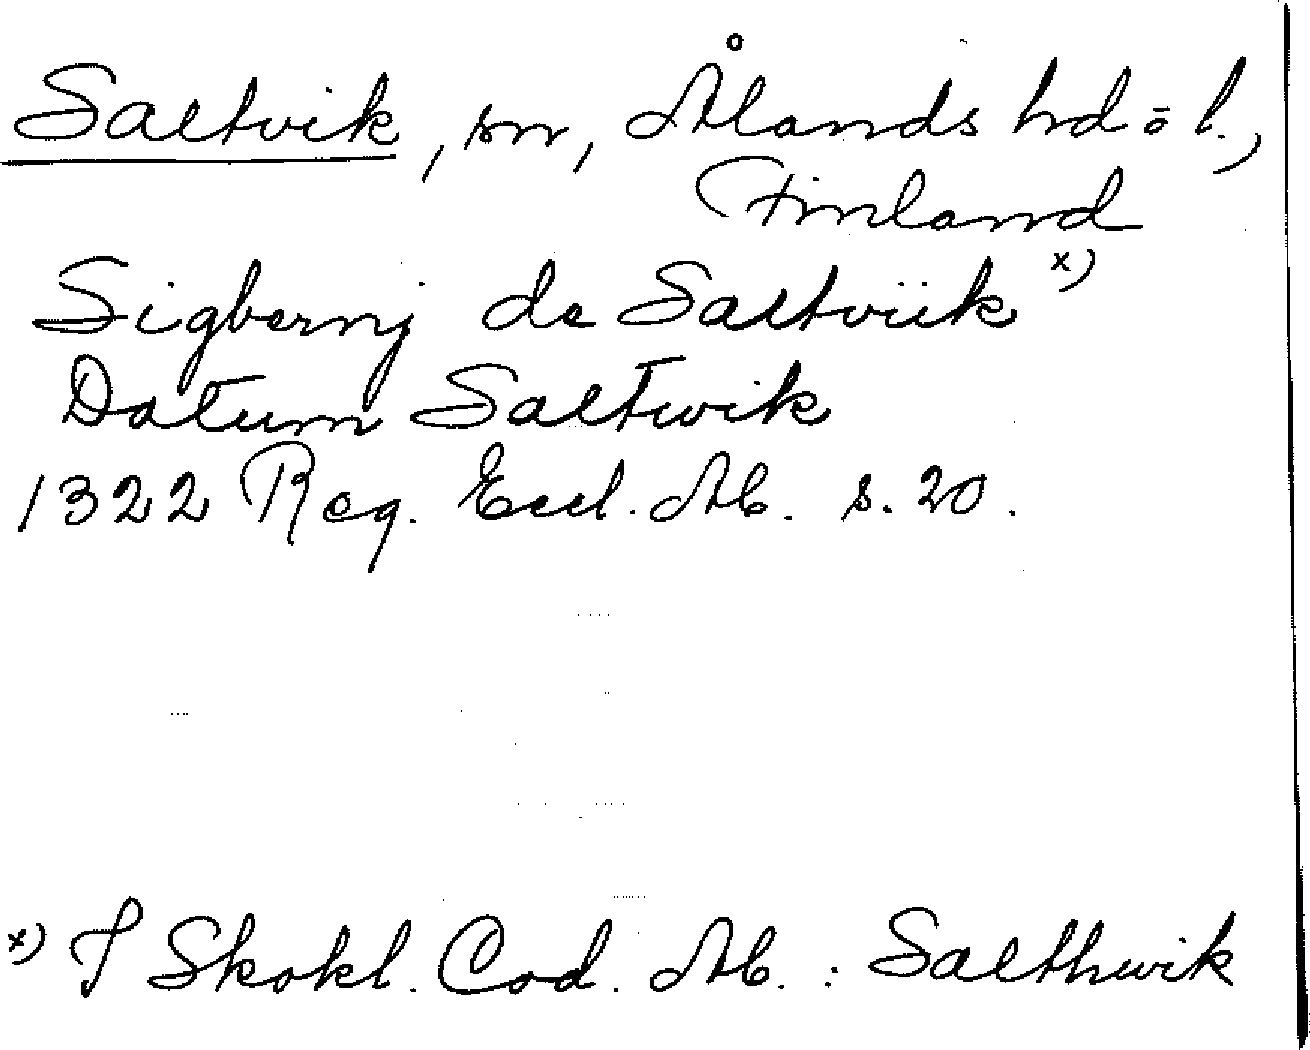 Saltvik, sn, Ålands hd ö l.,
Finland
Sigbernj de Saltviik x)
Datum Saltwik
1322 Reg. Eccl. Ab. s. 20.
x) I Skokl. Cod. Ab. : Salthwik